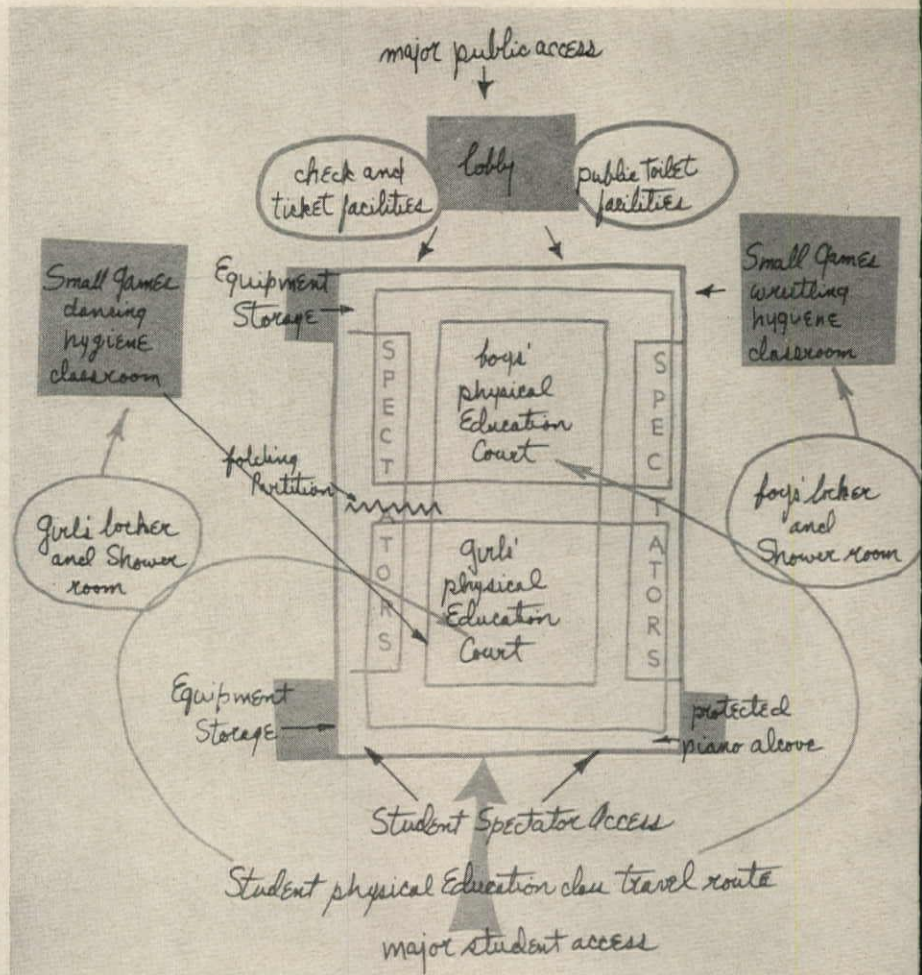 major public access
lobby
check and
ticket facilities
public toilet
facilities
Small Games
dancing
hygiene
classroom
Equipment
Storage
Small Games
wrestling
hyguene
classroom
SPECTATORS
boys'
physical
Education
Court
SPECTATORS
folding
Partition
girls' locker
and Shower
room
boys' locker
and
Shower room
girls'
physical
Education
Court
Equipment
Storage
protected
piano alcove
Student Spectator Access
Student physical Education class travel route
major student access